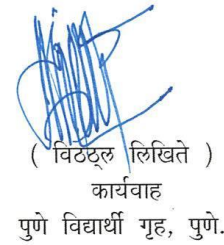 ( विठ्ठल लिखिते )
कार्यवाह
पुणे विद्यार्थी गृह, पुणे.